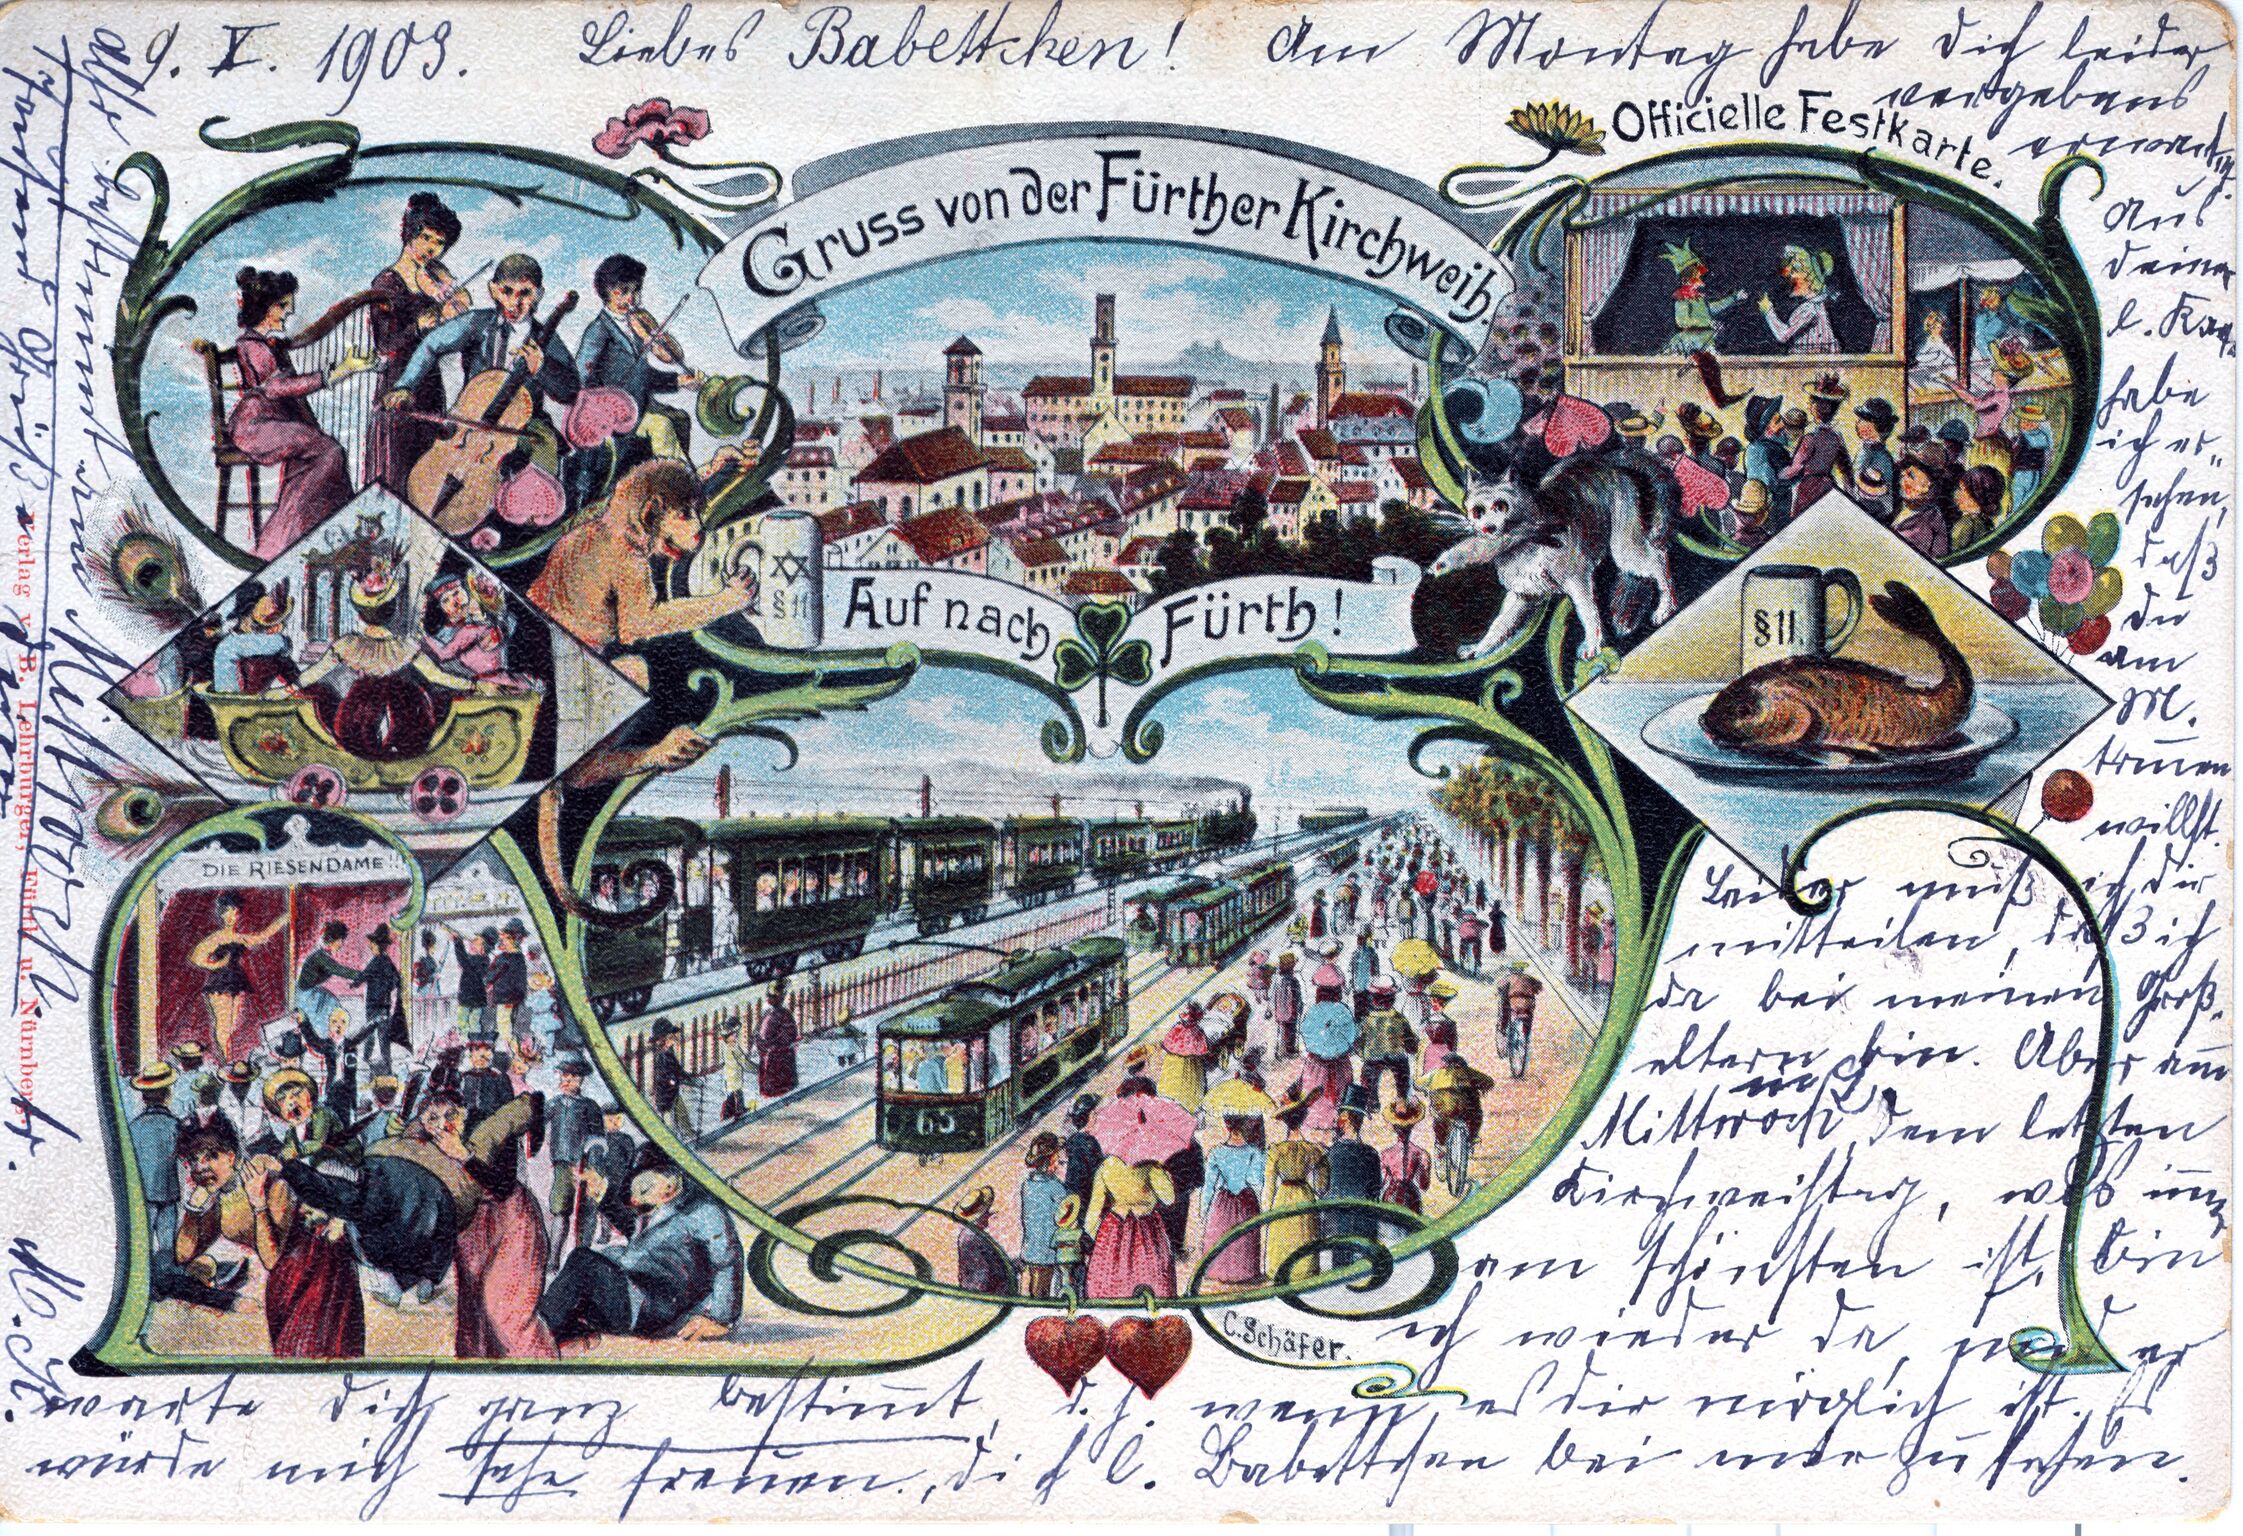 9. X. 1903. Liebes Babettchen! Am Montag habe dich leider
vergebens
erwartet.
Aus
deiner
l. Karte
habe
ich er„
sehen,
daß
du
am
M.
kommen
willst.
Leider muß ich dir
mitteilen, daß ich
da bei meinen Groß„
eltern bin. Aber am
Mittwoch, dem letzten
Kirchweihtag, wo es immer
am schönsten ist, bin
ich wieder da, und er
warte dich ganz bestimmt, d. h. wenn es dir möglich ist. Es
würde mich sehr freuen, dich l. Babettchen bei mir zu sehen.
Also bestimmt am Mittwoch
Gruß
Officielle Festkarte.
Gruss von der Fürther Kirchweih.
§ 11
Auf nach Fürth!
§ 11.
DIE RIESENDAME!!
63
C. Schäfer.
Verlag v. B. Lehrburger, Fürth u. Nürnberg.